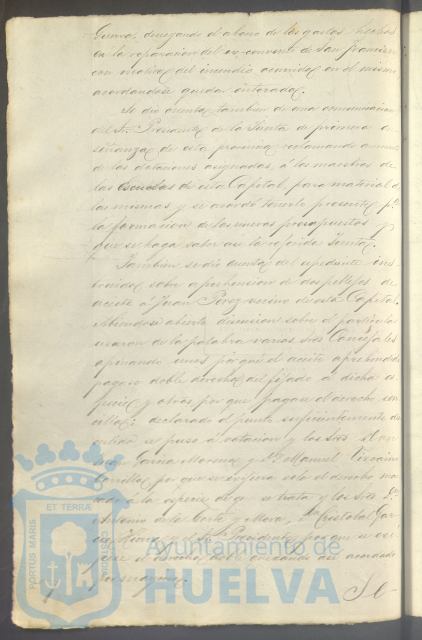 Guerra, denegando el abono de los gastos hechos
en la reparacion del ex-convento de San Francisco
con motivo del incendio ocurrido en el mismo
acordandose quedar enterado.
Se dió cuenta tambien de una comunicacion
del Sr. Presidente de la Junta de primera en
señanza de esta provincia reclamando
de las dotaciones asignadas, á los maestros de
las Escuelas de esta Capital para material de
las mismas y se acordó tenerlo presente pª
la formacion de los nuevos presupuestos y
que se haga saber asi á la referida Junta.
Tambien se dió cuenta del espediente ins
truido sobre aprehension de dos pellejos de
aceite á Juan Perez vecino de esta Capital.
Abiendose abierto discusion sobre el particular
usaron de la palabra varios Sres. Concejales
opinando unos porque el aceite aprehendido
pagase doble derecho del fijado á dicha es
pecie y otros por que pagase el derecho sen
cillo: declarado el punto suficientemente dis
cutido se puso á votacion y los Sres.
Garcia Moreno y Dn. Manuel Vizcaino
por que se exijiera solo el derecho mar
cado á la especie de que se trata y los Sres. Dn.
Antonio de la Corte y Mora, Dn. Cristobal Gar
cia, y el Sr. Presidente porque se exi
jiese el derecho doble quedando asi acordado
por mayoria.
Se
PORTUS MARIS
ET TERRÆ
CUSTODIA
Ayuntamiento de
HUELVA